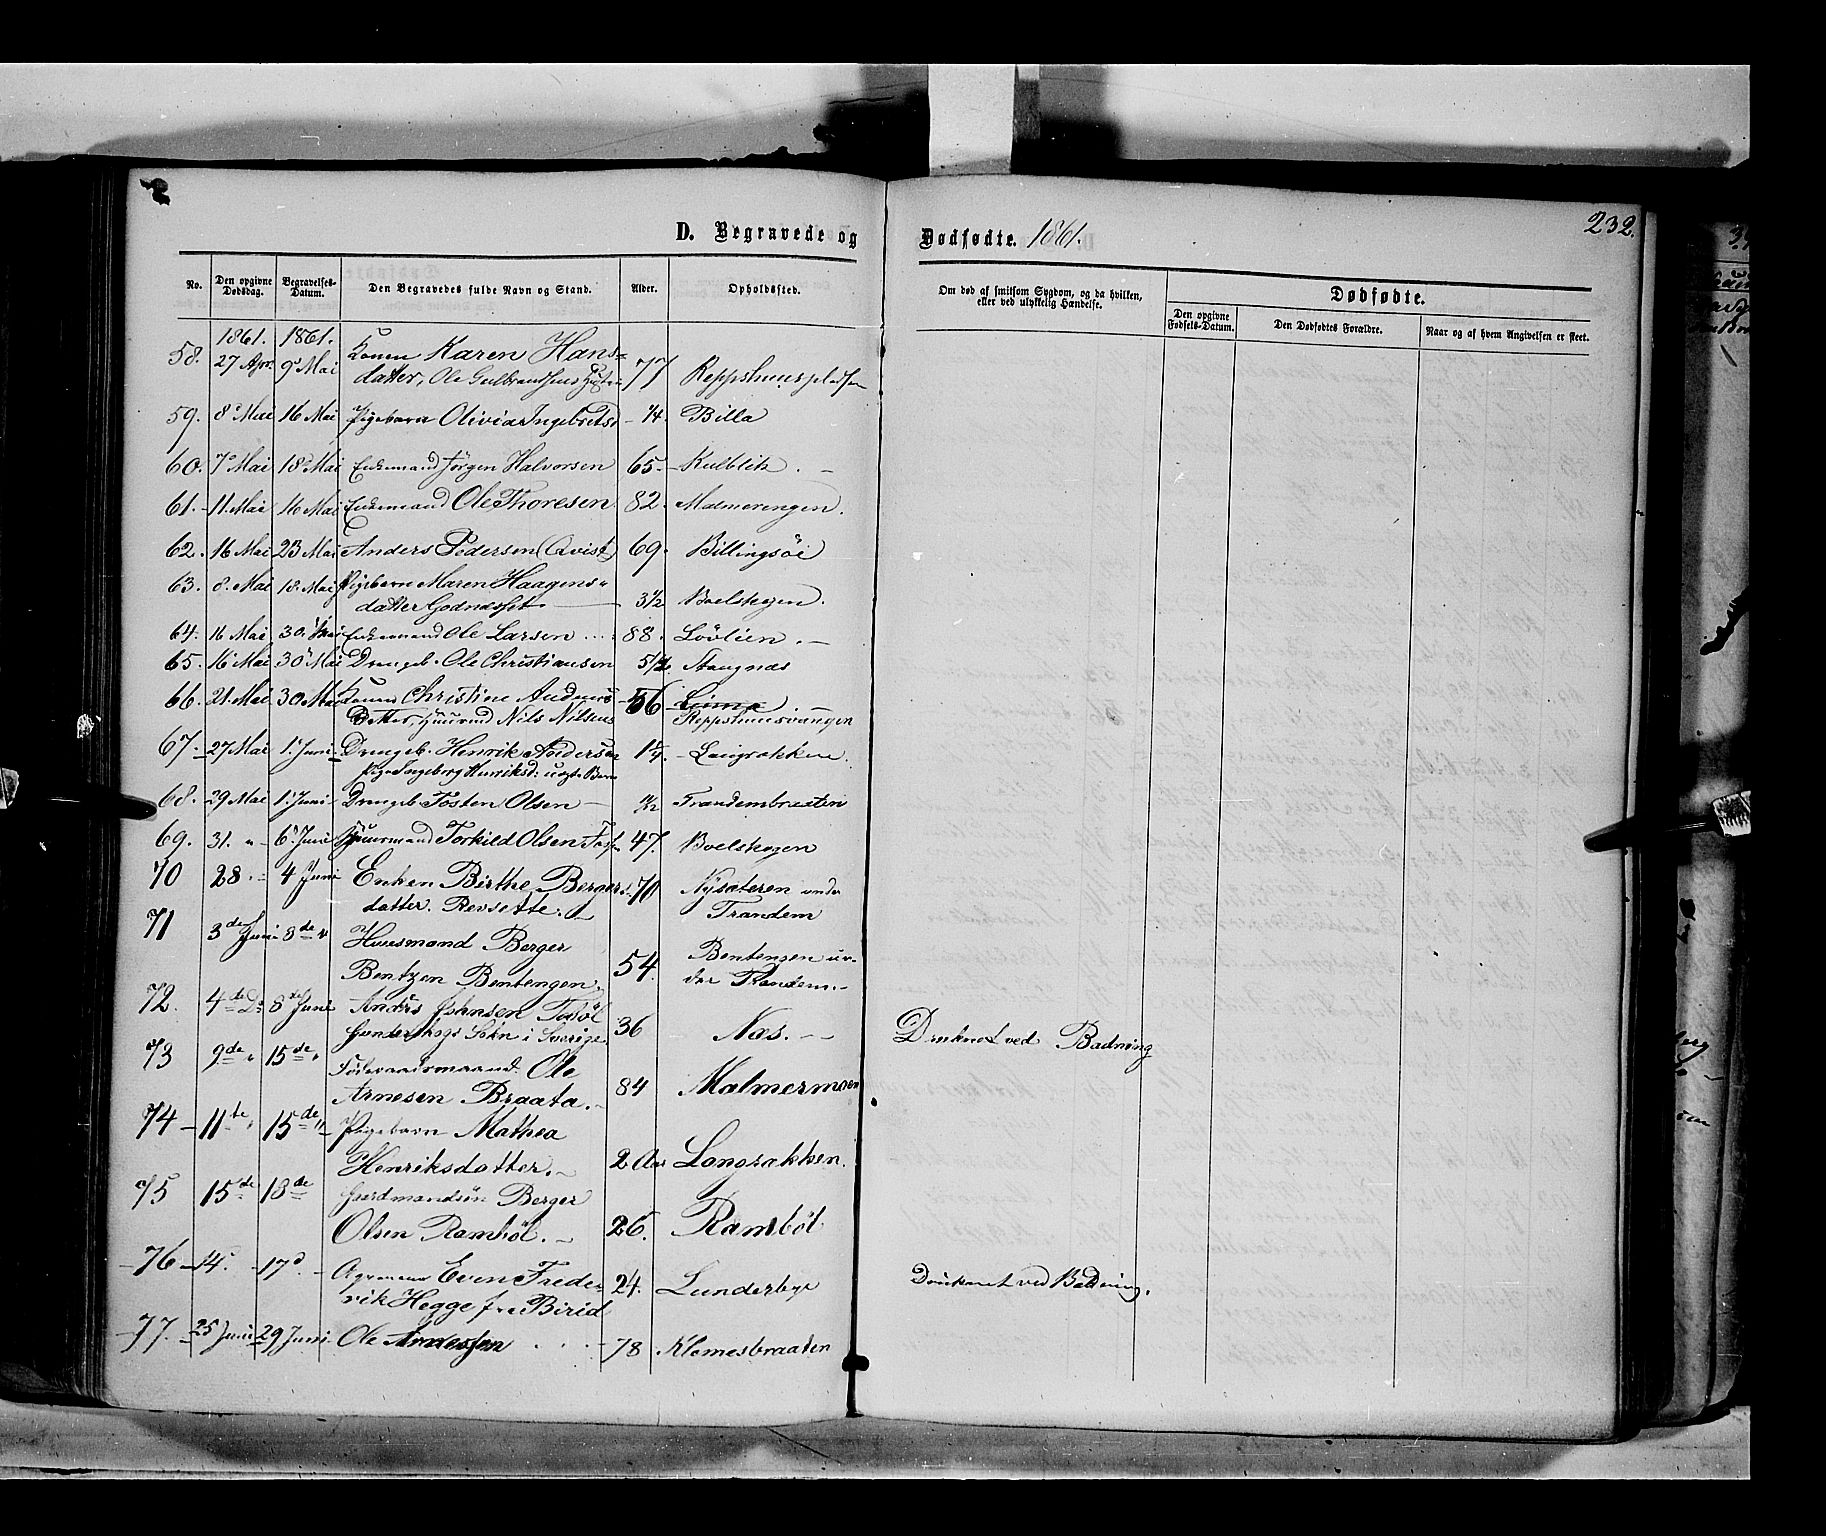 232.
D. Begravede og Dødfødte. 1861.
No. Den opgivne Dødsdag. Begravelses-Datum. Den Begravedes fulde Navn og Stand. Alder. Opholdssted. Om død af smitsom Sygdom, og da hvilken, eller ved ulykkelig Hændelse. Dødfødte.
Den opgivne Fødsels-Datum. Den Dødfødtes Forældre. Naar og af hvem Angivelsen er skeet.
1861. 1861.
58. 27 Apr. 9 Mai Konen Karen Hans-
datter, Ole Gulbrandsens 77 Reppshuuspladsen
59. 8 Mai 16 Mai Pigebarn Olivia Ingebretsd – 1/4. Billa
60. 7 Mai 18 Mai Enkemand Jörgen Halvorsen 65. Kulblik. –
61. – 11. Mai 16 Mai Enkemand Ole Thoresen 82. Malmerengen.
62. 16 Mai 23 Mai Anders Pedersen (Qvist) 69. Billingsöe
63. 8. Mai 18. Mai Pigebarn Maren Haagens-
datter Godnæsset 3 1/2 Boelskogen.
64. 16 Mai 30. Mai Enkemand Ole Larsen 88. Lövlien. –
65. 16 Mai 30 Mai Drengeb. Ole Christiansen 5 1/2 Stangnæs
66. 21. Mai 30 M Konen Christine Anders
Datter, Nils Nilsens 56 Reppshuusvangen
67. 27 Mai 1. Juni Drengeb. Henrik Andersen 1 1/4. Langrakken.
Pige Ingeborg Henriksd: uægte Barn
68. 29 Mai 1. Juni Drengeb. Tosten Olsen – 11/12 Trandembraaten
69. 31. " 6. Juni Huusmand Torkild Olsen 47. Boelskogen
70 28. " 4 Juni Enken Birthe Bergers- 70 Nysæteren under
datter. Revsette. – Trandem
71 3de Juni 8de " Huusmand Berger
Bentzen Bentengen. 54. Bentensen un-
der Trandem. –
72. 4de Ds 8de Juni Anders Johnsen
Sokn i Sverige. 36 Næs. – – Druknet ved Badning
73 9de " 15de " Föderaadsmand Ole
Arnesen Braata. – 84 Malmermoen
74 – 11te " 15de " – Pigebarn Mathea
Henriksdatter. – 2 Aar Langrakken.
75 15de 18de Gaardmandsön Berger
Olsen Ramböl. – 26. Ramböl
– 76 – 14. – 17d. – Even Frede-
rik Hegge fra Birid 24. Lunderbye Druknet ved Badning.
– 77. – 25 Juni – 29 Juni – Ole Andersen . . . – 78 Klemesbraaten